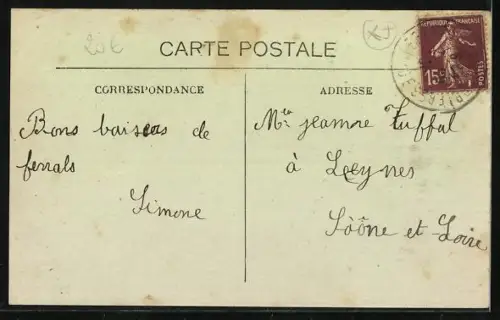 CARTE POSTALE
RÉPUBLIQUE FRANÇAISE
15c
POSTES
CORRESPONDANCE
ADRESSE
Bons baisers de
ferrals
Simone
Mlle jeanne Tuffal
à Leynes
Saône et-Loire